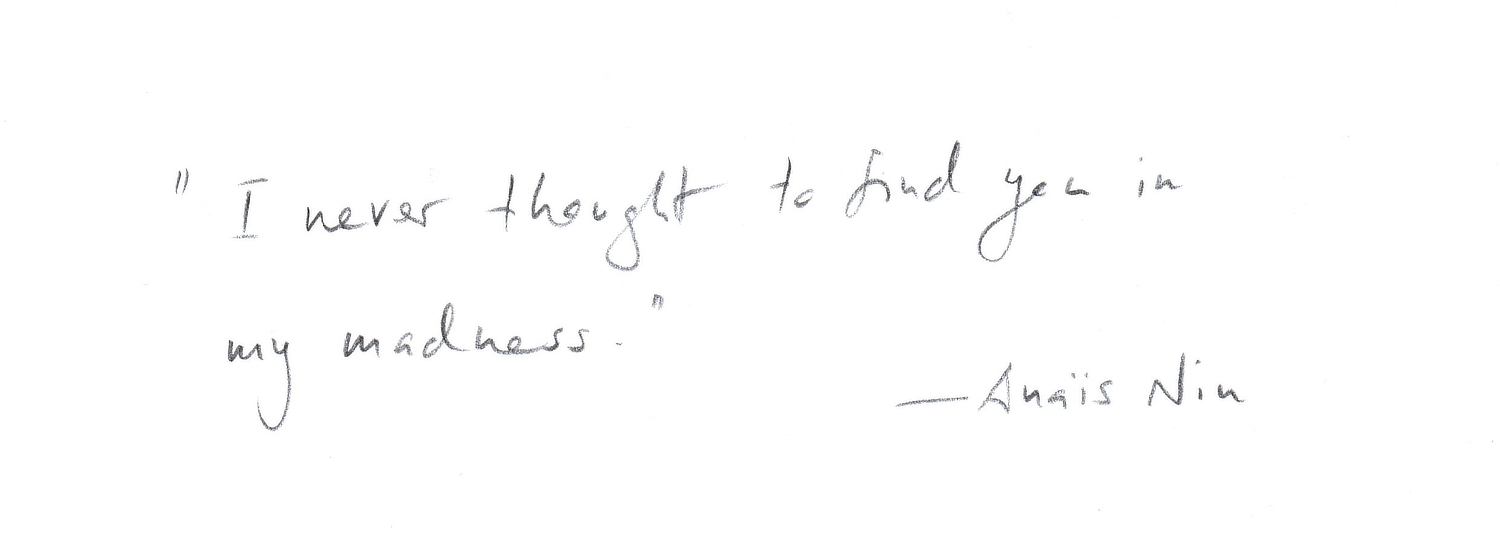 " I never thought to find you in
my madness."
—Anaïs Nin